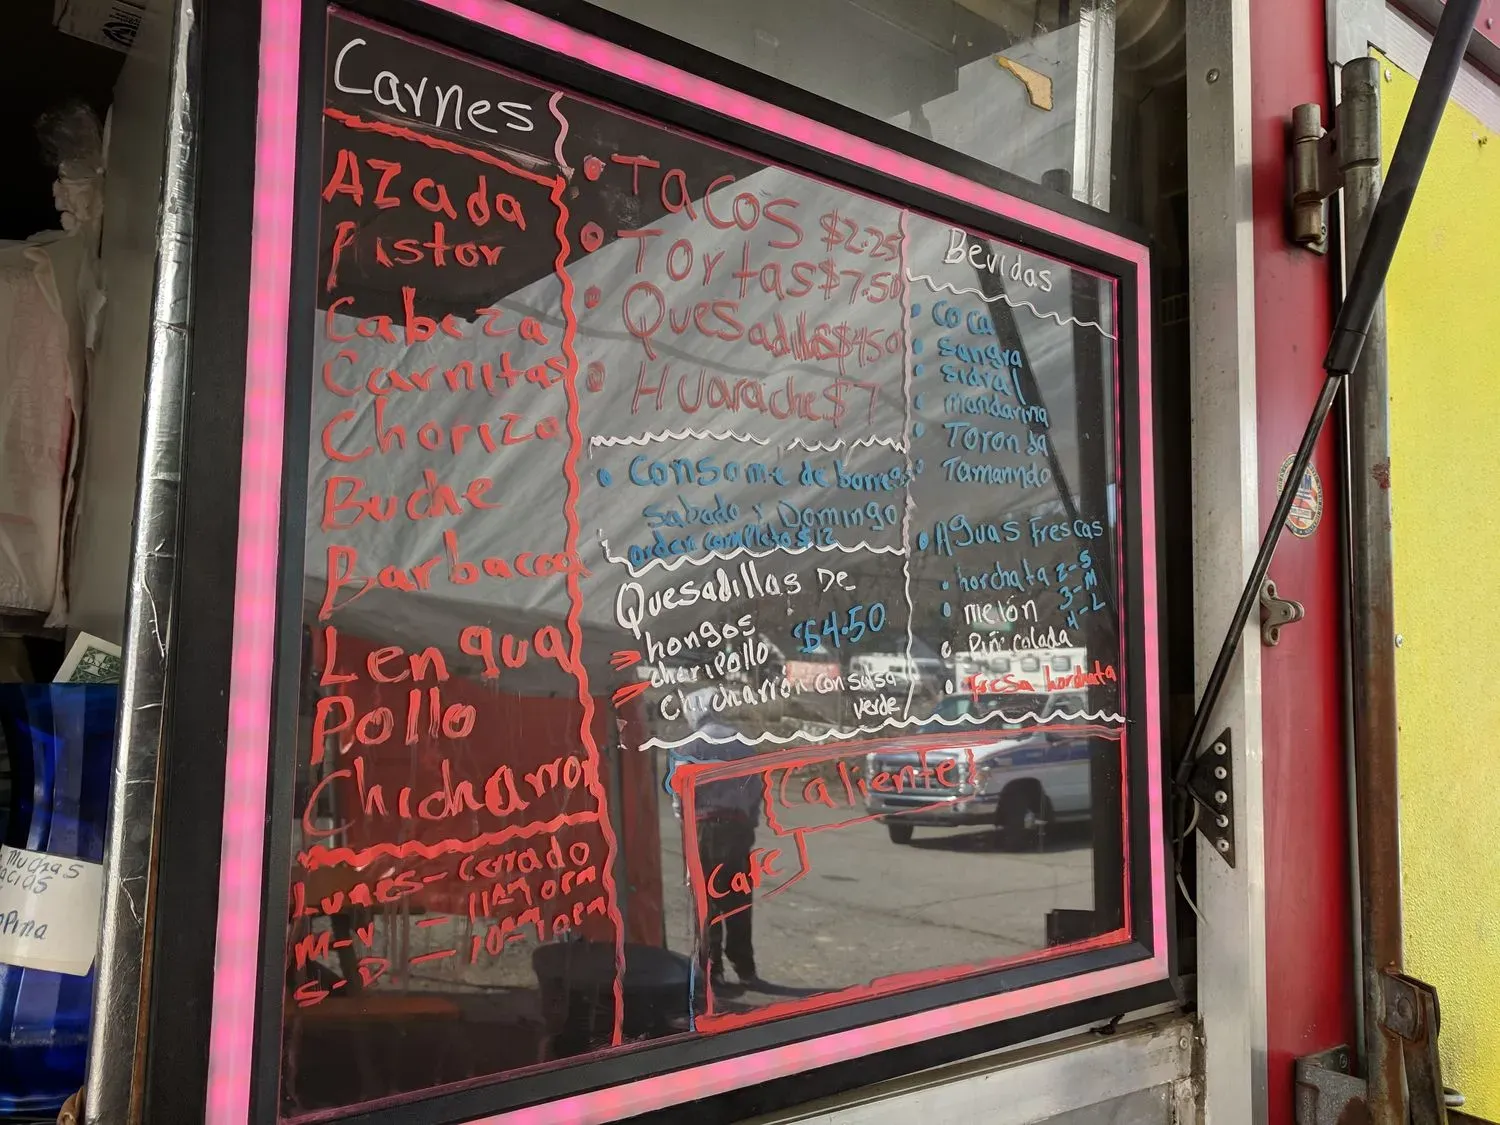 Carnes
Azada
Pastor
Cabeza
Carnitas
Chorizo
Buche
Barbacoa
Lengua
Pollo
Chicharron
Lunes - Cerrado
M-V - 11AM
S-D - 10AM
TACOS $2.25
TOrtas $7.50
Quesadillas $4.50
HUarache $7
Consome de borrego
Sabado y Domingo
orden completa $12
Quesadillas De
hongos $4.50
choripollo
Chicharrón con salsa
verde
Bevidas
Coca
Sangra
Sidral
mandarina
Toronja
Tamarindo
Aguas Frescas
horchata 2-S
3-M
4-L
melón
Piñ colada
Fresa horchata
Caliente
Cafe
muchas